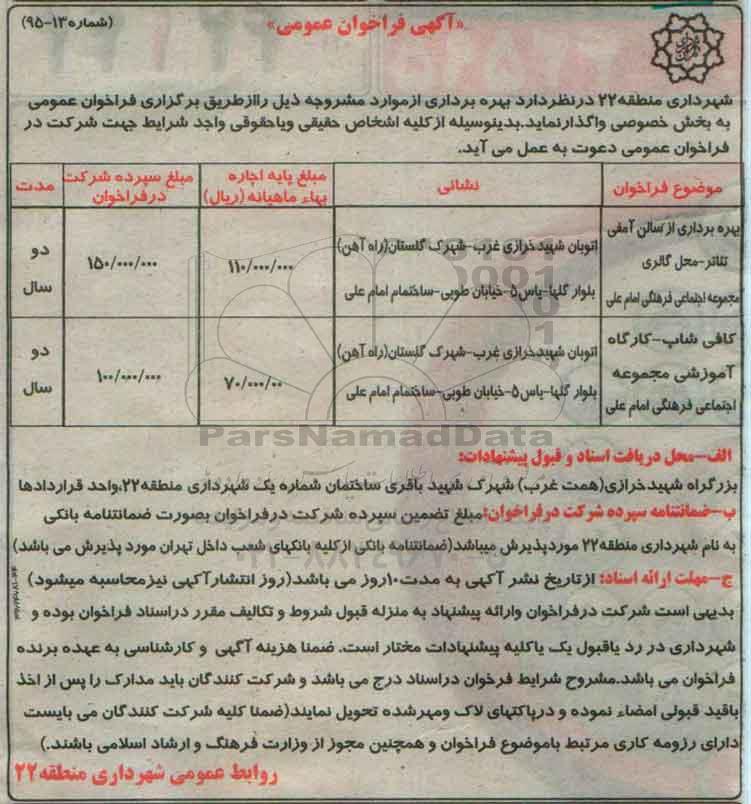 «آگهی فراخوان عمومی»
(شماره ۱۳-۹۵)
شهرداری منطقه۲۲ درنظردارد بهره برداری ازموارد مشروحه ذیل راازطریق برگزاری فراخوان عمومی
به بخش خصوصی واگذارنماید.بدینوسیله ازکلیه اشخاص حقیقی ویاحقوقی واجد شرایط جهت شرکت در
فراخوان عمومی دعوت به عمل می آید.
موضوع فراخوان
نشانی
مبلغ پایه اجاره
بهاء ماهیانه (ریال)
مبلغ سپرده شرکت
درفراخوان
مدت
بهره برداری از سالن آمفی
تئاتر-محل گالری
مجموعه اجتماعی فرهنگی امام علی
اتوبان شهیدخرازی غرب-شهرک گلستان(راه آهن)
بلوار گلها-یاس۵-خیابان طوبی-ساختمام امام علی
۱۱۰/۰۰۰/۰۰۰
۱۵۰/۰۰۰/۰۰۰
دو
سال
کافی شاپ-کارگاه
آموزشی مجموعه
اجتماعی فرهنگی امام علی
اتوبان شهیدخرازی غرب-شهرک گلستان(راه آهن)
بلوار گلها-یاس۵-خیابان طوبی-ساختمام امام علی
۷۰/۰۰۰/۰۰
۱۰۰/۰۰۰/۰۰۰
دو
سال
ParsNamadData
الف-محل دریافت اسناد و قبول پیشنهادات:
بزرگراه شهیدخرازی(همت غرب) شهرک شهید باقری ساختمان شماره یک شهرداری منطقه۲۲،واحد قراردادها
ب-ضمانتنامه سپرده شرکت درفراخوان:مبلغ تضمین سپرده شرکت درفراخوان بصورت ضمانتنامه بانکی
به نام شهرداری منطقه۲۲ موردپذیرش میباشد(ضمانتنامه بانکی ازکلیه بانکهای شعب داخل تهران مورد پذیرش می باشد)
ج-مهلت ارائه اسناد: ازتاریخ نشر آگهی به مدت۱۰روز می باشد(روز انتشارآگهی نیزمحاسبه میشود)
بدیهی است شرکت درفراخوان وارائه پیشنهاد به منزله قبول شروط و تکالیف مقرر دراسناد فراخوان بوده و
شهرداری در رد یاقبول یک یاکلیه پیشنهادات مختار است. ضمنا هزینه آگهی و کارشناسی به عهده برنده
فراخوان می باشد.مشروح شرایط فرخوان دراسناد درج می باشد و شرکت کنندگان باید مدارک را پس از اخذ
باقید قبولی امضاء نموده و درپاکتهای لاک ومهرشده تحویل نمایند(ضمنا کلیه شرکت کنندگان می بایست
دارای رزومه کاری مرتبط باموضوع فراخوان و همچنین مجوز از وزارت فرهنگ و ارشاد اسلامی باشند.)
روابط عمومی شهرداری منطقه ۲۲